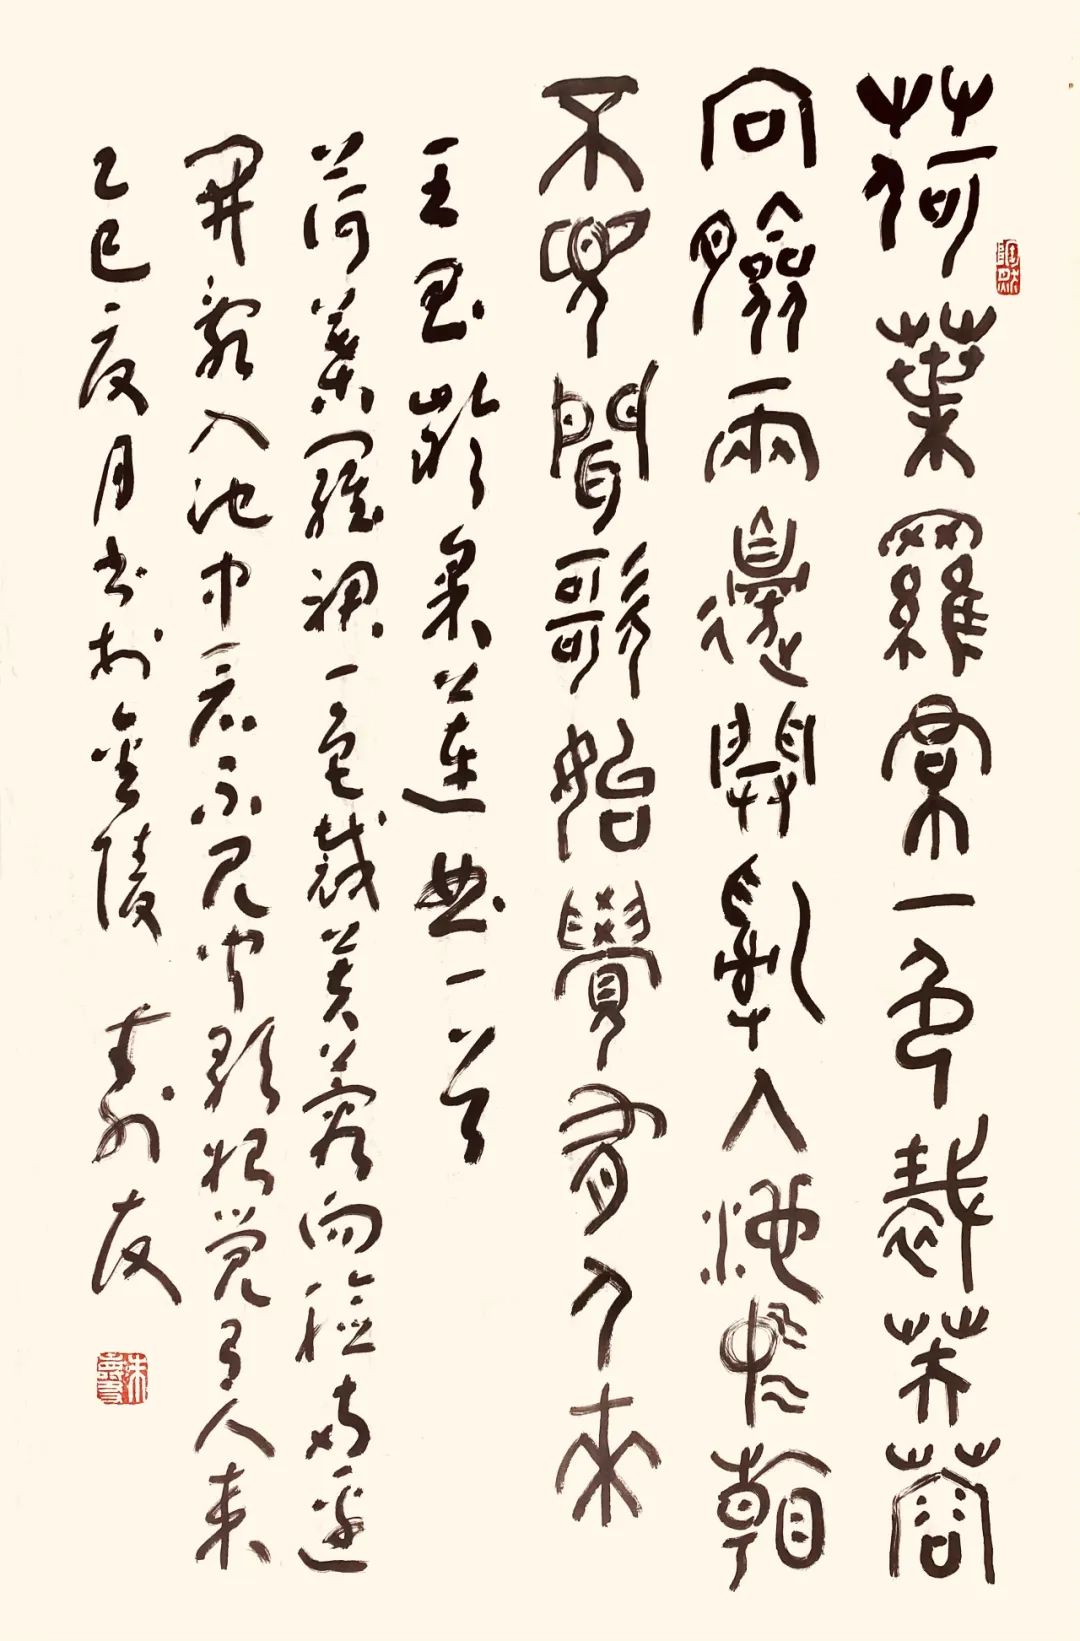 荷葉羅帬一色裁芙蓉
向臉兩邊開亂入池中看
不見聞歌始覺有人來
王昌齡采蓮曲一首
荷葉羅裙一色裁芙蓉向臉兩邊
開亂入池中看不見聞歌始覺有人來
乙巳夏月書於金陵 壽友
朱壽友